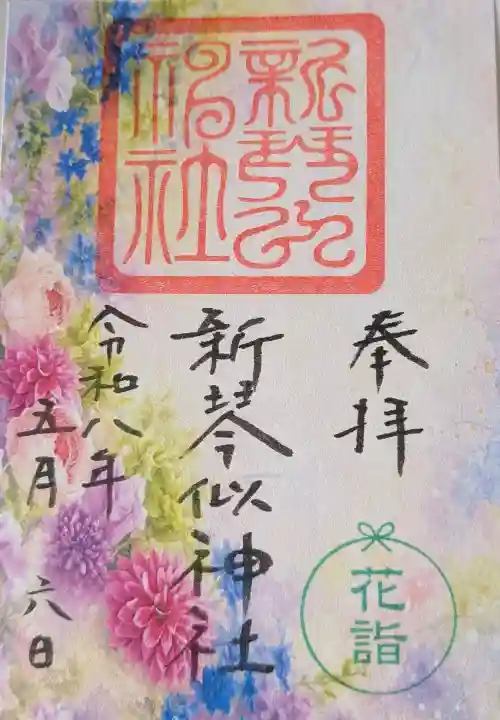 奉拝
花詣
新琴似神社
新琴似
神社
令和八年
五月 六日